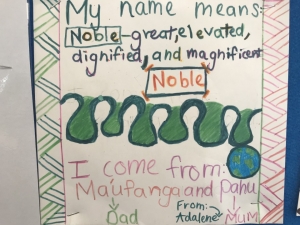 My name means:
Noble-great, elevated,
dighified, and magnificent
Noble
I come from:
Ma'ufanga and Pahu
Dad
From:
Adalene
Mum